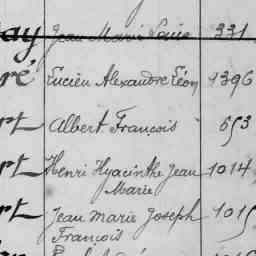 ay Jean Marie Louis 331
ré Lucien Alexandre Léon 1396
rt Albert François 653
rt Henri Hyacinthe Jean 1014
Marie
rt Jean Marie Joseph 1015
François